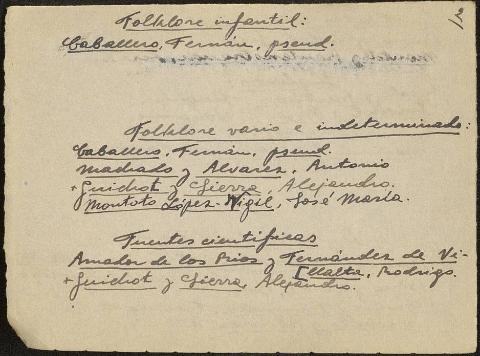 12
Folklore infantil:
Caballero, Fernán, pseud.
Folklore vario e indeterminado:
Caballero, Fernán, pseud.
Machado y Alvarez, Antonio
+ Guichot y Sierra, Alejandro.
Montoto López-Vigil, José María.
Fuentes científicas
Amador de los Rios y Fernández de Vi-
[llalta, Rodrigo.
+ Guichot y Sierra, Alejandro.